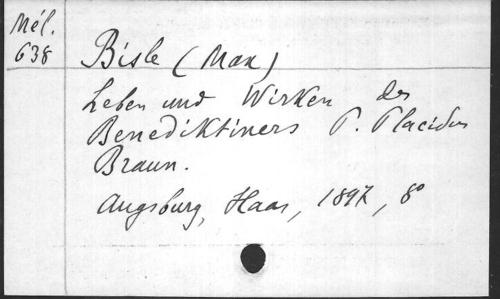 Mél.
638
Bisle (Max)
Leben und Wirken des
Benediktiners P. Placidus
Braun.
Augsburg, Haas, 1897, 8°